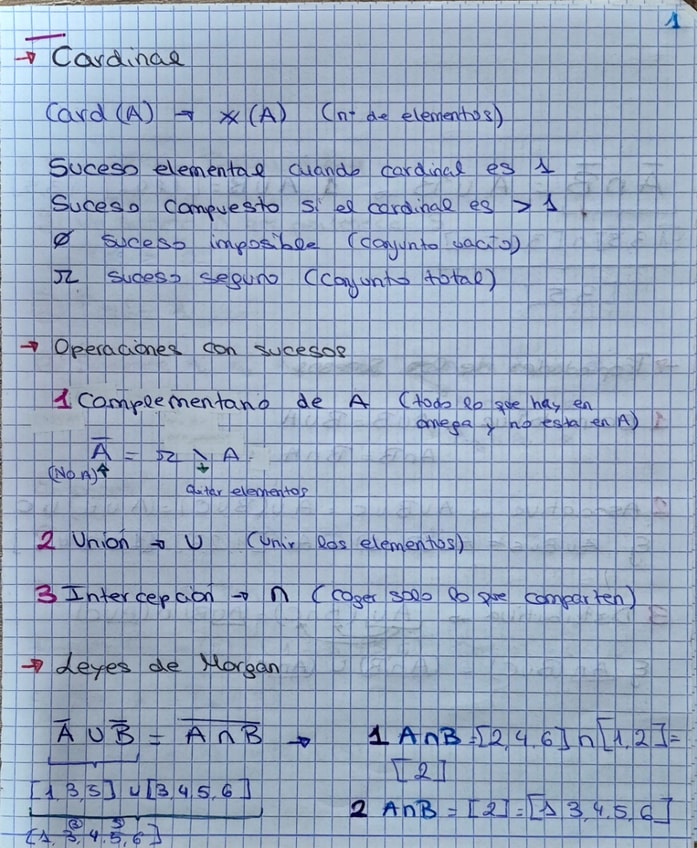 1
→ Cardinal
Card (A) → *(A) (nº de elementos)
Suceso elemental cuando cardinal es 1
Suceso compuesto si el cardinal es > 1
Ø suceso imposible (conjunto vacío)
Ω suceso seguro (conjunto total)
→ Operaciones con sucesos
1 Complementario de A (todo lo que hay en
omega y no esta en A)
A̅ = Ω \ A
(No A)
Quitar elementos
2 Unión → ∪ (unir los elementos)
3 Intercepción → ∩ (coger solo lo que comparten)
→ Leyes de Morgan
A̅ ∪ B̅ = A̅ ̅∩̅ ̅B̅ → 1 A∩B = [2,4,6] ∩ [1,2] =
[2]
[1,3,5] ∪ [3,4,5,6]
2 A∩B = [2] = [1 3,4,5,6]
[1, 3, 4, 5, 6]